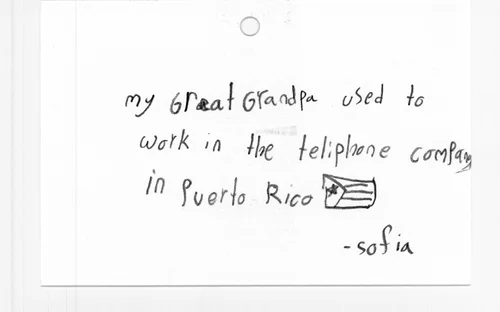 my Great Grandpa used to
work in the teliphone company
in Puerto Rico
-sofia